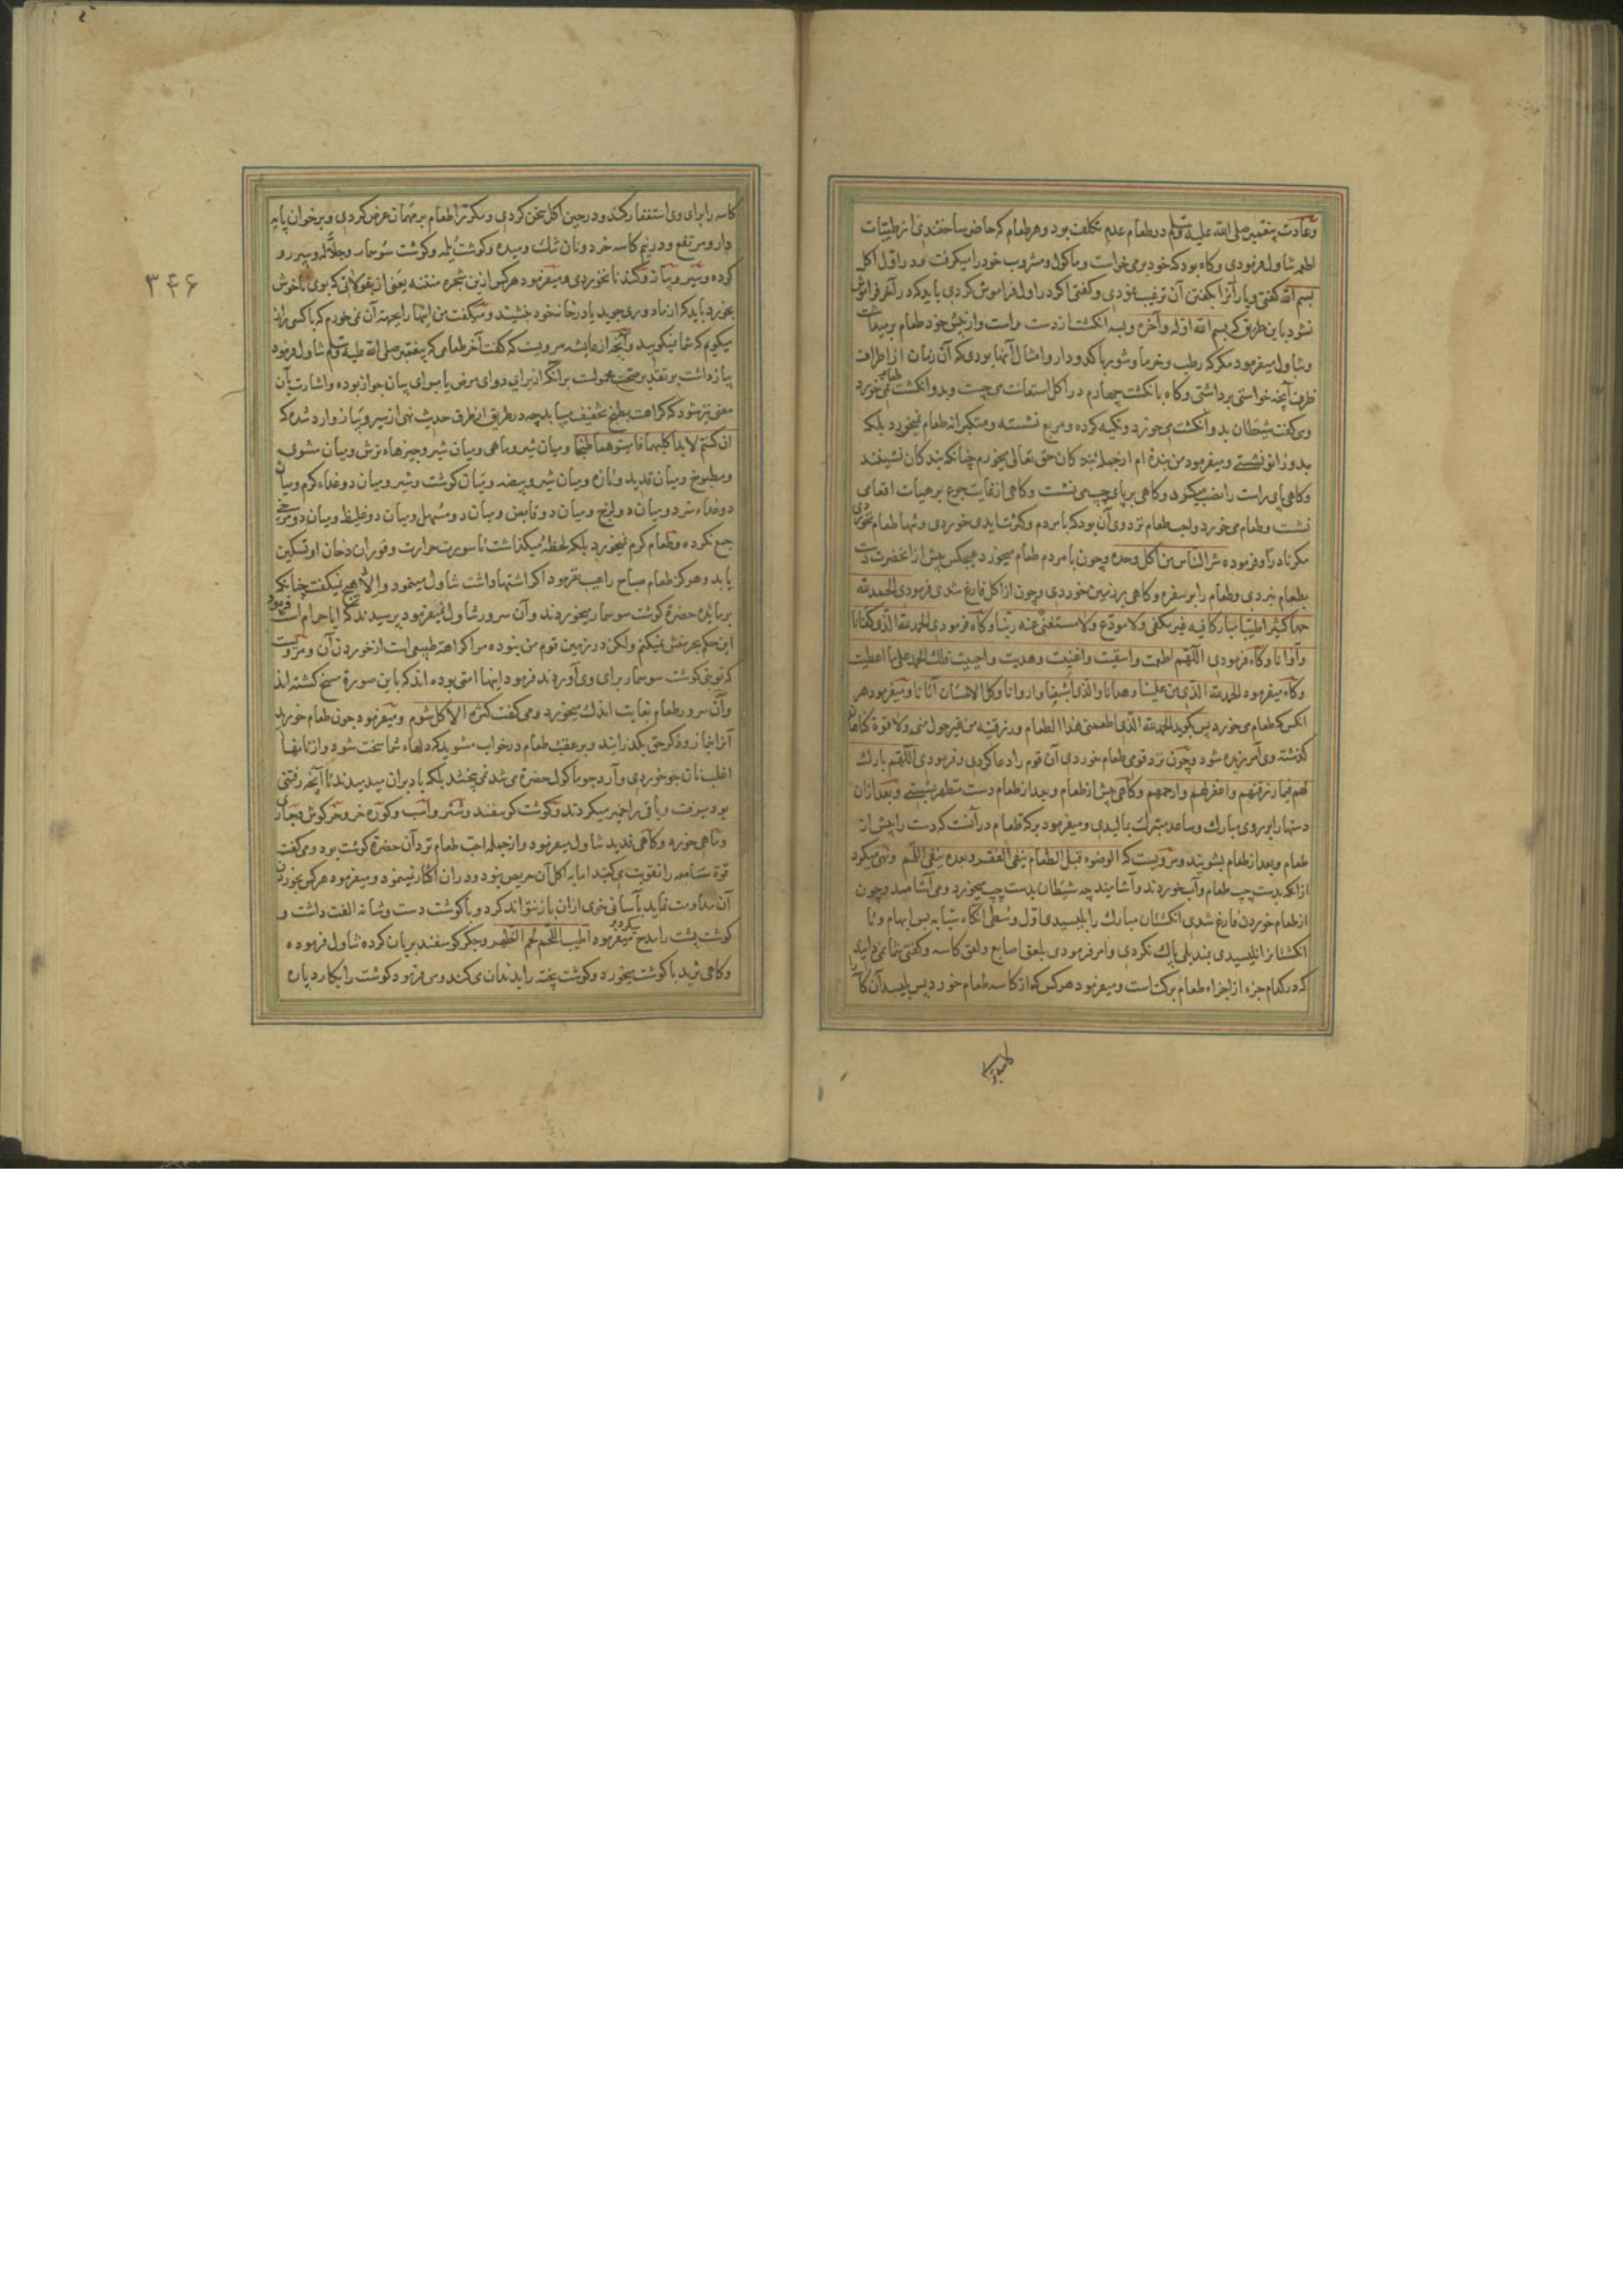 وعادت پیغمبر صلی الله علیه وسلم در طعام عدم تکلف بود و هر طعام که حاضر ساختندی از طیبات
اطعمه تناول فرمودی و گاه بود که خود برمی‌خواست و ماکول و مشروب خود را میگرفت و در اول اکل
بسم الله گفتی و یارانرا بگفتن آن ترغیب نمودی و گفتی اگر در اول فراموش کردی باید که در آخر فراموش
نشود باین طریق که بسم الله اوله وآخره و بسه انگشت از دست راست و از پیش خود طعام برمیداشت
و تناول میفرمود مگر که رطب و خرما و شوربا کدودار و امثال آنها بودی که آن زمان از اطراف
ظرف آنچه خواستی برداشتی و گاه بانگشت چهارم در اکل استعانت می جست و بدو انگشت طعام نمی خورد
ومی گفت شیطان بدو انگشت می خورد و تکیه کرده و مربع نشسته و متکبرانه طعام نمیخورد بلکه
بدو زانو نشستی و میفرمود من بنده ام از جمله بندکان حق تعالی میخورم چنانکه بندکان نشینند
و گاهی پای راست را نصب میکرد و گاهی بر پای چپ می نشست و گاهی از غایت جوع بر هیات اقعا می
نشست و طعام می خورد واحب طعام نزد وی آن بود که با مردم و کثرت ایدی خوردی و تنها طعام نخوردی
مگر نادرا و فرموده شر الناس من اکل وحده و چون با مردم طعام میخورد هیچکس پیش از انحضرت دست
بطعام نبردی و طعام را بر سفره و گاهی بر زمین خوردی و چون از اکل فارغ شدی فرمودی الحمد لله
حمدا کثیرا طیبا مبارکا فیه غیر مکفی ولا مودع ولا مستغنی عنه ربنا و گاه فرمودی الحمد لله الذی کفانا
وآوانا و گاه فرمودی اللهم اطعمت واسقیت واغنیت وهدیت واحییت فلک الحمد علی ما اعطیت
و گاه میفرمود الحمد لله الذی من علینا وهدانا والذی اشبعنا واروانا وکل الاحسان آتانا و میفرمود هر
انکس که طعام می خورد پس بگوید الحمد لله الذی اطعمنی هذا الطعام ورزقنیه من غیر حول منی ولا قوة گناهان
گذشته وی آمرزیده شود و چون نزد قومی طعام خوردی آن قوم را دعا کردی و فرمودی اللهم بارک
لهم فیما رزقتهم واغفر لهم وارحمهم و گاهی پیش از طعام و بعد از طعام دست مطهر بشستی و بعد ازان
دستها را بر روی مبارک و ساعد متبرک بمالیدی و میفرمود برکة طعام در آنست که دست را پیش از
طعام و بعد از طعام بشویند و مرویست که الوضوء قبل الطعام ینفی الفقر وبعده ینفی اللمم و نهی میکرد
از آنکه بدست چپ طعام وآب خورند وآشامیند چه شیطان بدست چپ میخورد و می آشامد و چون
از طعام خوردن فارغ شدی انگشتان مبارک را بلیسیدی اول وسطی انگاه سبابه پس ابهام و تا
انگشتانرا نلیسیدی بمندیلی پاک نکردی و امر فرمودی بلعق اصابع ولعق کاسه و گفتی شما نمی دانید
که در کدام جزء از اجزاء طعام برکتست و میفرمود هر کس که از کاسه طعام خورد پس بلیسد آن کاسه را
کاسه را برای وی استغفار کند و در حین اکل سخن کردی و مکررا طعام بر مهمان عرض کردی و بر خوان پایه
دار و مرتفع و در نیم کاسه خرد و نان تنک و میده و گوشت سوسمار و جلاله و سپرز و
گرده و سیر و پیاز و گندنا نخوردی و میفرمود هر کس ازین شجره منتنه یعنی از بقولاتی که بوی ناخوش
بخورد باید که از ما دوری جوید یا در خانه خود بنشیند و میگفت من اینها را بجهت آن نمی خورم که با کسی راز
میگویم که شما نمیگویید و آنچه از عایشه مرویست که گفت آخر طعامی که پیغمبر صلی الله علیه وسلم تناول فرمود
پیاز داشت بر تقدیر صحت محمولست بر آنکه از برای دوای مرض یا برای بیان جواز بوده و اشارت بآن
معنی نیز شود که کراهت بطبخ تخفیف میابد چه در طریق از طرق حدیث نهی از سیر و پیاز وارد شده که
ان کنتم لابد اکلیهما فامیتوهما طبخا و میان شیر و ماهی و میان شیر و چیزهاء ترش و میان مشوی
و مطبوخ و میان قدید و تازه و میان شیر و بیضه و میان گوشت و شیر و میان دو غذاء گرم و میان
دو غذاء سرد و میان دو لزج و میان دو قابض و میان دو مسهل و میان دو غلیظ و میان دو مرخی
جمع نکرده و طعام گرم نمیخورد بلکه لحظه میگذاشت تا سورت حرارت و فوران دخان او تسکین
یابد و هرگز طعام مباح را عیب نفرمود اگر اشتها داشت تناول مینمود و الا هیچ نمیگفت چنانکه
بر مایده حضرة گوشت سوسمار میخوردند و آن سرور تناول نمیفرمود پرسیدند که ایا حرام است فرمود
این حکم بحرمتش نمیکنم ولکن در زمین قوم من نبوده مرا کراهة طبیعی است از خوردن آن و مرویست
که نوبتی گوشت سوسمار برای وی آوردند فرمود اینها امتی بوده اند که باین صورة مسخ گشته اند
وآن سرور طعام بغایت اندک میخورد و می گفت کثرة الاکل شوم و میفرمود چون طعام خورید
آنرا بنماز و ذکر حق بگذرانید و بر عقب طعام در خواب مشوید که دلهاء شما سخت شود و از نانها
اغلب نان جو خوردی وآرد جو ماکول حضرة می شد نمی پختند بلکه باد بران میدمیدند تا آنچه رفتنی
بود میرفت و باقی را خمیر میکردند و گوشت گوسفند و شتر و اسب و گوره خر و خرگوش و حباری
و ماهی خورده و گاهی قدید تناول میفرمود و از جمله احب طعام نزد آن حضرة گوشت بود و می گفت
قوة سامعه را تقویت می کند اما به اکل آن حریص نبود و دران اکثار نمینمود و میفرمود هر کس بخوردن
آن مداومت نماید بآسانی خوی ازان باز نتواند کرد و با گوشت دست و شانه الفت داشت و
گوشت پشت را مدح میکرد و میفرمود اطیب اللحم لحم الظهر و جگر گوسفند بریان کرده تناول فرموده
و گاهی ثرید با گوشت میخورد و گوشت پخته را بدندان می کند و می فرمود گوشت را بکارد پاره
۳۴۶